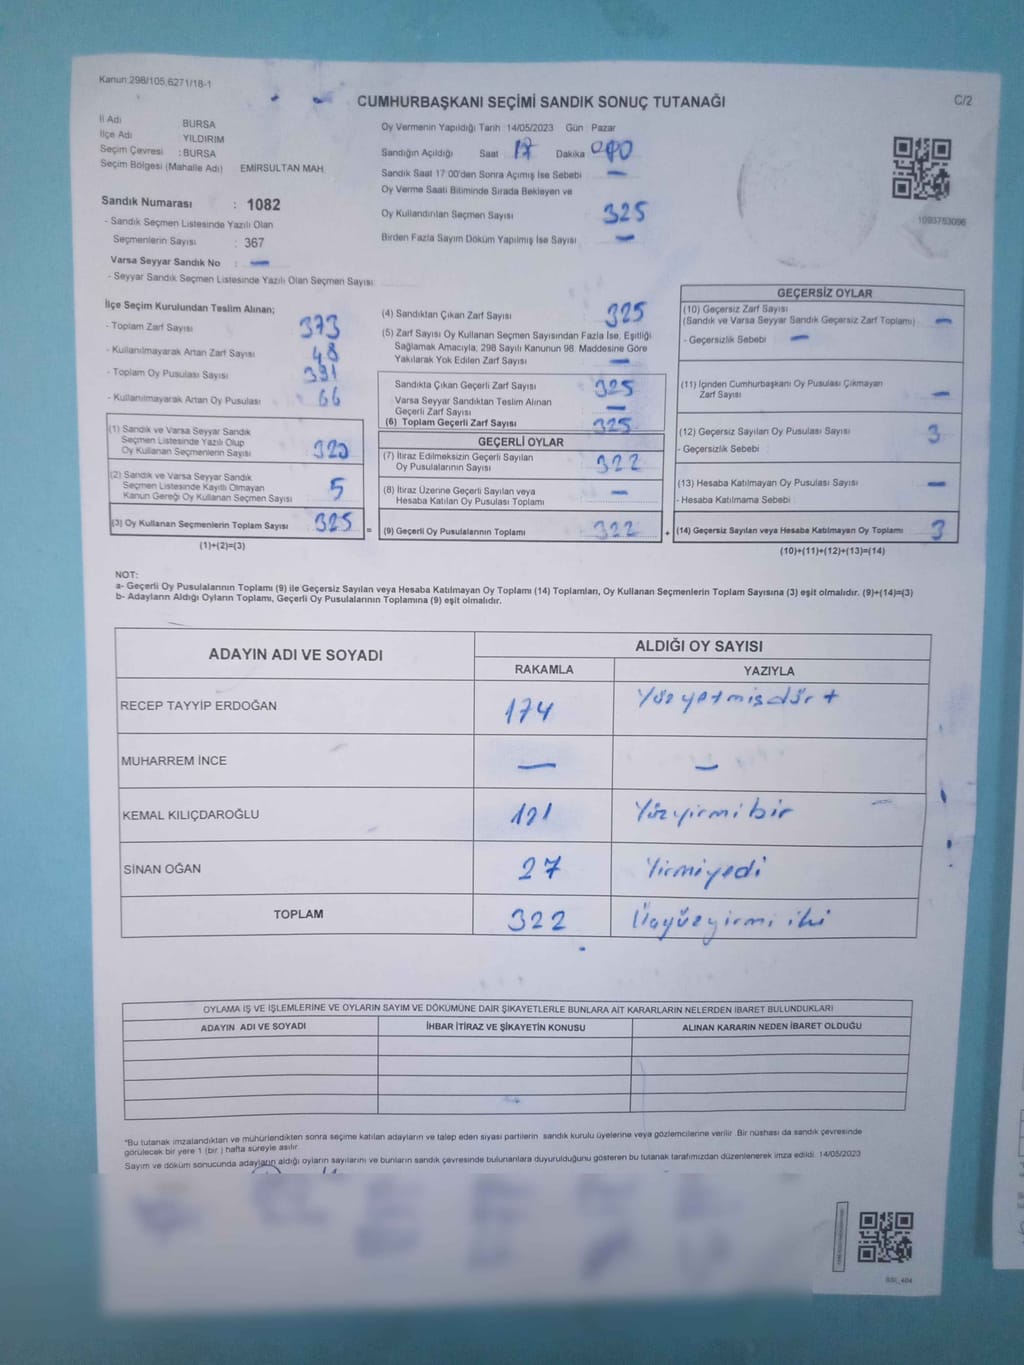 Kanun:298/105,6271/18-1
CUMHURBAŞKANI SEÇİMİ SANDIK SONUÇ TUTANAĞI
C/2
İl Adı BURSA
İlçe Adı YILDIRIM
Seçim Çevresi : BURSA
Seçim Bölgesi (Mahalle Adı) EMİRSULTAN MAH.
Sandık Numarası : 1082
- Sandık Seçmen Listesinde Yazılı Olan
Seçmenlerin Sayısı : 367
Varsa Seyyar Sandık No : —
- Seyyar Sandık Seçmen Listesinde Yazılı Olan Seçmen Sayısı
Oy Vermenin Yapıldığı Tarih 14/05/2023 Gün Pazar
Sandığın Açıldığı Saat 17 Dakika
Sandık Saat 17.00'den Sonra Açılmış İse Sebebi —
Oy Verme Saati Bitiminde Sırada Bekleyen ve
Oy Kullandırılan Seçmen Sayısı 325
Birden Fazla Sayım Döküm Yapılmış İse Sayısı —
1093753096
İlçe Seçim Kurulundan Teslim Alınan;
- Toplam Zarf Sayısı 373
- Kullanılmayarak Artan Zarf Sayısı 48
- Toplam Oy Pusulası Sayısı 391
- Kullanılmayarak Artan Oy Pusulası 66
(1) Sandık ve Varsa Seyyar Sandık
Seçmen Listesinde Yazılı Olup
Oy Kullanan Seçmenlerin Sayısı 320
(2) Sandık ve Varsa Seyyar Sandık
Seçmen Listesinde Kayıtlı Olmayan
Kanun Gereği Oy Kullanan Seçmen Sayısı 5
(3) Oy Kullanan Seçmenlerin Toplam Sayısı 325 =
(1)+(2)=(3)
(4) Sandıktan Çıkan Zarf Sayısı 325
(5) Zarf Sayısı Oy Kullanan Seçmen Sayısından Fazla İse, Eşitliği
Sağlamak Amacıyla, 298 Sayılı Kanunun 98. Maddesine Göre
Yakılarak Yok Edilen Zarf Sayısı —
Sandıkta Çıkan Geçerli Zarf Sayısı 325
Varsa Seyyar Sandıktan Teslim Alınan
Geçerli Zarf Sayısı —
(6) Toplam Geçerli Zarf Sayısı 325
GEÇERLİ OYLAR
(7) İtiraz Edilmeksizin Geçerli Sayılan
Oy Pusulalarının Sayısı 322
(8) İtiraz Üzerine Geçerli Sayılan veya
Hesaba Katılan Oy Pusulası Toplamı —
(9) Geçerli Oy Pusulalarının Toplamı 322 +
GEÇERSİZ OYLAR
(10) Geçersiz Zarf Sayısı
(Sandık ve Varsa Seyyar Sandık Geçersiz Zarf Toplamı) —
- Geçersizlik Sebebi —
(11) İçinden Cumhurbaşkanı Oy Pusulası Çıkmayan
Zarf Sayısı —
(12) Geçersiz Sayılan Oy Pusulası Sayısı 3
- Geçersizlik Sebebi
(13) Hesaba Katılmayan Oy Pusulası Sayısı —
- Hesaba Katılmama Sebebi
(14) Geçersiz Sayılan veya Hesaba Katılmayan Oy Toplamı 3
(10)+(11)+(12)+(13)=(14)
NOT:
a- Geçerli Oy Pusulalarının Toplamı (9) ile Geçersiz Sayılan veya Hesaba Katılmayan Oy Toplamı (14) Toplamları, Oy Kullanan Seçmenlerin Toplam Sayısına (3) eşit olmalıdır. (9)+(14)=(3)
b- Adayların Aldığı Oyların Toplamı, Geçerli Oy Pusulalarının Toplamına (9) eşit olmalıdır.
ADAYIN ADI VE SOYADI ALDIĞI OY SAYISI
RAKAMLA YAZIYLA
RECEP TAYYİP ERDOĞAN 174 Yüzyetmişdört
MUHARREM İNCE — —
KEMAL KILIÇDAROĞLU 121 Yüzyirmibir
SİNAN OĞAN 27 Yirmiyedi
TOPLAM 322 Üçyüzyirmi iki
OYLAMA İŞ VE İŞLEMLERİNE VE OYLARIN SAYIM VE DÖKÜMÜNE DAİR ŞİKAYETLERLE BUNLARA AİT KARARLARIN NELERDEN İBARET BULUNDUKLARI
ADAYIN ADI VE SOYADI İHBAR İTİRAZ VE ŞİKAYETİN KONUSU ALINAN KARARIN NEDEN İBARET OLDUĞU
*Bu tutanak imzalandıktan ve mühürlendikten sonra seçime katılan adayların ve talep eden siyasi partilerin sandık kurulu üyelerine veya gözlemcilerine verilir. Bir nüshası da sandık çevresinde
görülecek bir yere 1 (bir ) hafta süreyle asılır.
Sayım ve döküm sonucunda adayların aldığı oyların sayılarını ve bunların sandık çevresinde bulunanlara duyurulduğunu gösteren bu tutanak tarafımızdan düzenlenerek imza edildi. 14/05/2023